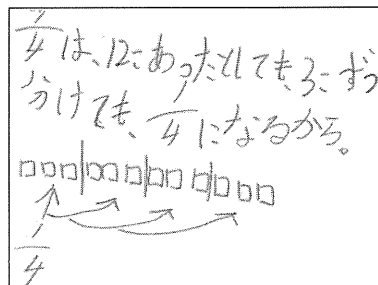 1/4は、12こあったとしても、3こずつ
分けても、1/4になるから。
1/4